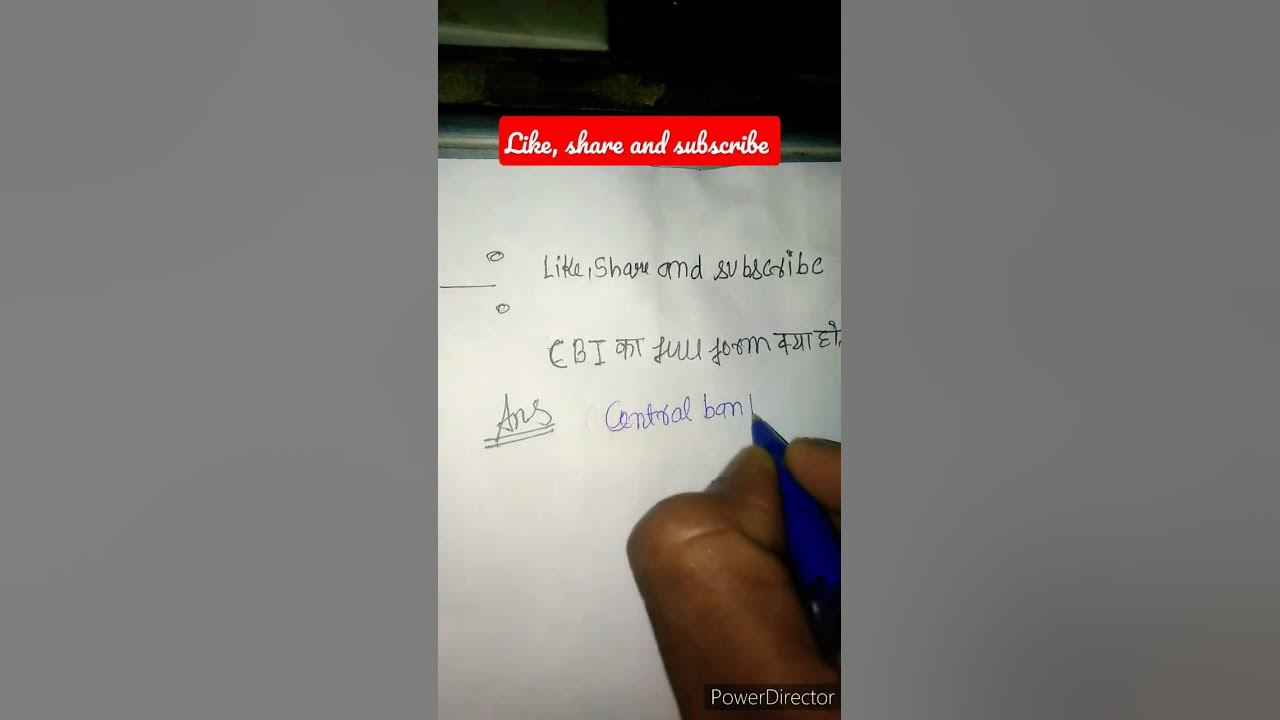 Like, share and subscribe
Like, Share and subscribe
CBI का full form क्या हो
Ans Central ban
PowerDirector